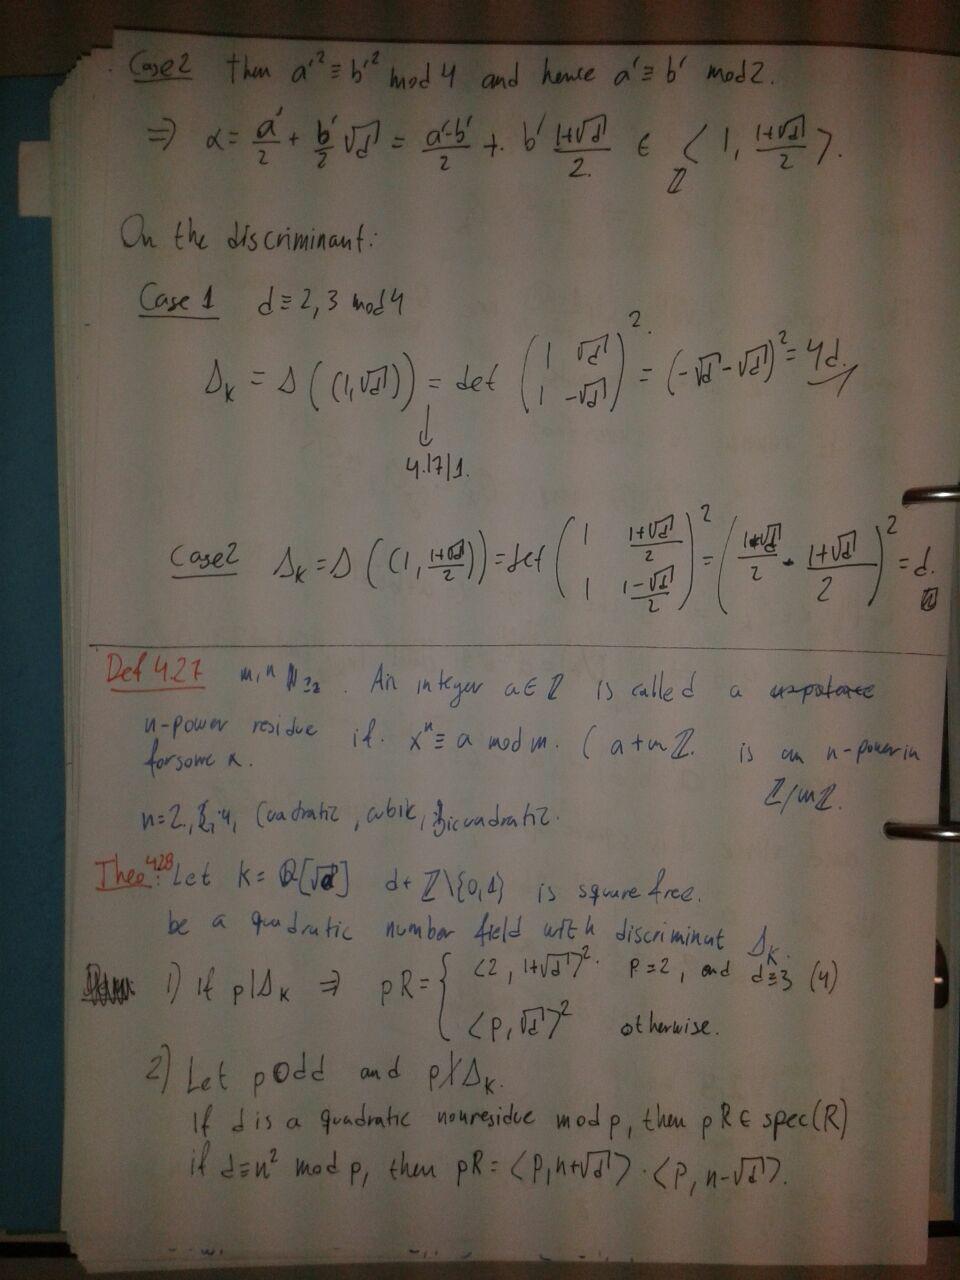 Case 2 then a'² ≡ b'² mod 4 and hence a' ≡ b' mod 2.
⇒ α = a'/2 + b'/2 √d = (a'-b')/2 + b' (1+√d)/2 ∈ ℤ⟨1, (1+√d)/2⟩.
On the discriminant:
Case 1 d ≡ 2, 3 mod 4
Δ_K = Δ((1, √d)) = det (1 √d; 1 -√d)² = (-√d - √d)² = 4d.
↓
4.17/1.
Case 2 Δ_K = Δ((1, (1+√d)/2)) = det (1 (1+√d)/2; 1 (1-√d)/2)² = ((1-√d)/2 - (1+√d)/2)² = d.
Def 4.27 m, n ℕ≥2. An integer a ∈ ℤ is called a
n-power residue if. xⁿ ≡ a mod m. (a+mℤ. is an n-power in
for some x. ℤ/mℤ.
n=2, 3, 4, Cuadratic, cubik, bicuadratic.
Theo 4.28: Let K = ℚ[√d] d ∈ ℤ\{0,1} is square free.
be a quadratic number field with discriminut Δ_K.
1) If p|Δ_K ⇒ pR = { ⟨2, 1+√d⟩². p=2, and d≡3 (4)
⟨p, √d⟩² otherwise.
2) Let p Odd and p∤Δ_K.
If d is a quadratic nonresidue mod p, then pR ∈ spec(R)
if d≡n² mod p, then pR = ⟨p, n+√d⟩ · ⟨p, n-√d⟩.